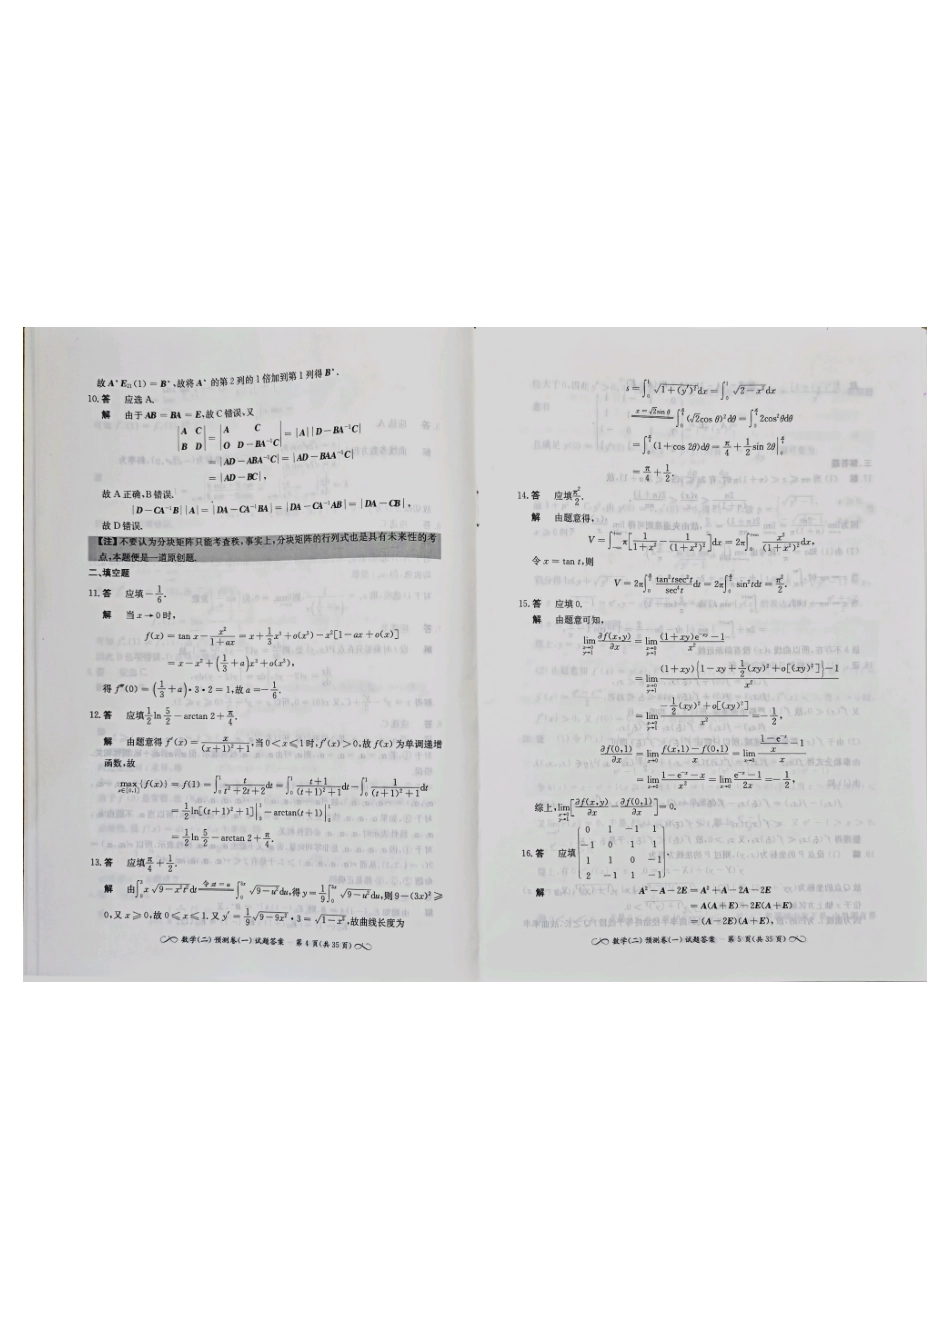 故 A* E₂₁(1) = B*,故将 A* 的第 2 列的 1 倍加到第 1 列得 B*.
10. 答 应选 A.
解 由于 AB = BA = E,故 C 错误,又
|A C; B D| = |A C; O D − BA⁻¹C| = |A||D − BA⁻¹C|
= |AD − ABA⁻¹C| = |AD − BAA⁻¹C|
= |AD − BC|,
故 A 正确,B 错误.
|D − CA⁻¹B||A| = |DA − CA⁻¹BA| = |DA − CA⁻¹AB| = |DA − CB|,
故 D 错误.
【注】不要认为分块矩阵只能考查秩,事实上,分块矩阵的行列式也是具有未来性的考
点,本题便是一道原创题.
二、填空题
11. 答 应填 −1/6.
解 当 x → 0 时,
f(x) = tan x − x²/(1 + ax) = x + (1/3)x³ + o(x³) − x²[1 − ax + o(x)]
= x − x² + (1/3 + a)x³ + o(x³),
得 f‴(0) = (1/3 + a)·3·2 = 1,故 a = −1/6.
12. 答 应填 (1/2)ln(5/2) − arctan 2 + π/4.
解 由题意得 f′(x) = x/((x + 1)² + 1),当 0 < x ≤ 1 时,f′(x) > 0,故 f(x) 为单调递增
函数,故
max_{x∈[0,1]} {f(x)} = f(1) = ∫₀¹ t/(t² + 2t + 2) dt = ∫₀¹ (t + 1)/((t + 1)² + 1) dt − ∫₀¹ 1/((t + 1)² + 1) dt
= (1/2)ln[(t + 1)² + 1]|₀¹ − arctan(t + 1)|₀¹
= (1/2)ln(5/2) − arctan 2 + π/4.
13. 答 应填 π/4 + 1/2.
解 由 ∫₀³ x√(9 − x²t²) dt 令xt = u ∫₀³ˣ √(9 − u²) du,得 y = (1/9)∫₀³ˣ √(9 − u²) du,则 9 − (3x)² ≥
0,又 x ≥ 0,故 0 ≤ x ≤ 1. 又 y′ = (1/9)√(9 − 9x²)·3 = √(1 − x²),故曲线长度为
数学(二)预测卷(一)试题答案 第 4 页(共 35 页)
s = ∫₀¹ √(1 + (y′)²) dx = ∫₀¹ √(2 − x²) dx
x = √2 sin θ ∫₀^{π/4} (√2 cos θ)² dθ = ∫₀^{π/4} 2cos²θ dθ
= ∫₀^{π/4} (1 + cos 2θ) dθ = π/4 + (1/2)sin 2θ|₀^{π/4}
= π/4 + 1/2.
14. 答 应填 π²/2.
解 由题意得,
V = ∫₋∞^{+∞} π[1/(1 + x²) − 1/(1 + x²)²] dx = 2π∫₀^{+∞} x²/(1 + x²)² dx,
令 x = tan t,则
V = 2π∫₀^{π/2} tan²t sec²t/sec⁴t dt = 2π∫₀^{π/2} sin²t dt = π²/2.
15. 答 应填 0.
解 由题意可知,
lim_{x→0, y→1} ∂f(x,y)/∂x = lim_{x→0, y→1} ((1 + xy)e^{−xy} − 1)/x²
= lim_{x→0, y→1} ((1 + xy){1 − xy + (1/2)(xy)² + o[(xy)²]} − 1)/x²
= lim_{x→0, y→1} (−(1/2)(xy)² + o[(xy)²])/x² = −1/2,
∂f(0,1)/∂x = lim_{x→0} (f(x,1) − f(0,1))/x = lim_{x→0} ((1 − e⁻ˣ)/x − 1)/x
= lim_{x→0} (1 − e⁻ˣ − x)/x² = lim_{x→0} (e⁻ˣ − 1)/2x = −1/2,
综上,lim_{x→0, y→1} [∂f(x,y)/∂x − ∂f(0,1)/∂x] = 0.
16. 答 应填 [0 1 −1 1; −1 0 1 1; 1 1 0 −1; 2 −1 1 −1].
解 A² − A − 2E = A² + A − 2A − 2E
= A(A + E) − 2E(A + E)
= (A − 2E)(A + E),
数学(二)预测卷(一)试题答案 第 5 页(共 35 页)